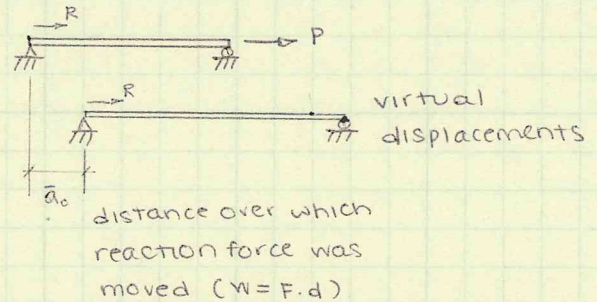 R
P
R
virtual
displacements
ā₀
distance over which
reaction force was
moved (W = F.d)